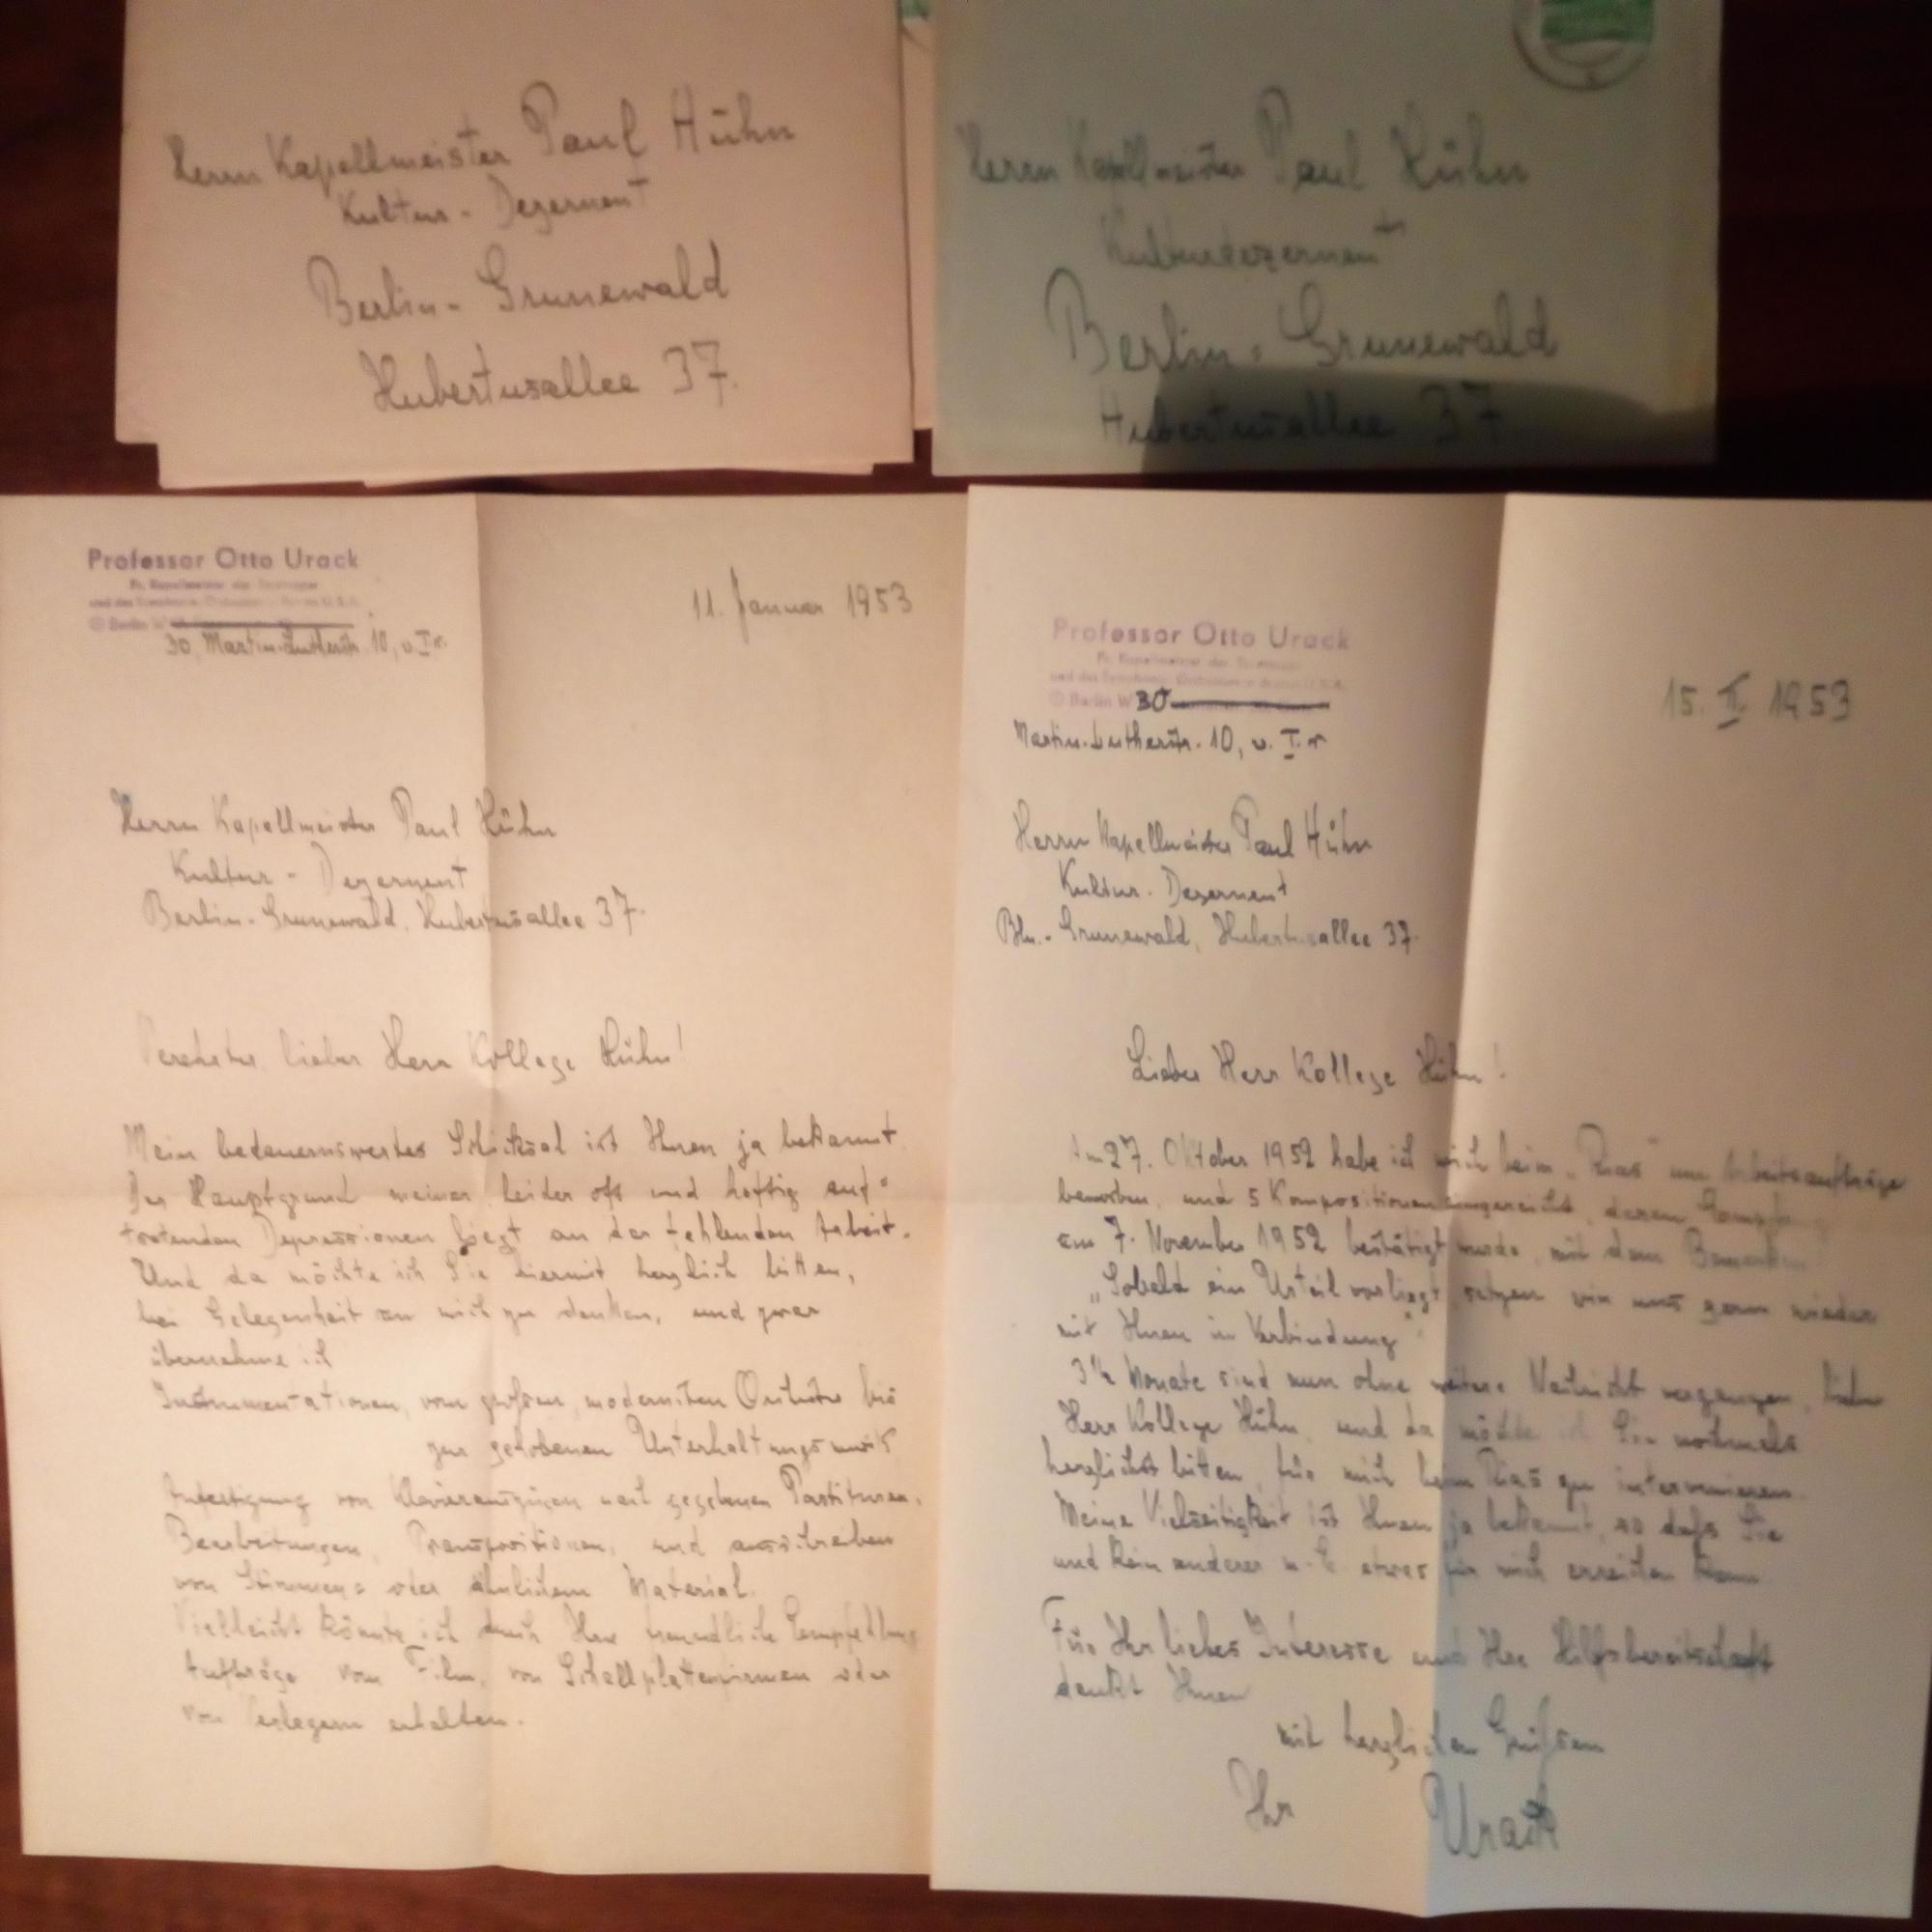 Herrn Kapellmeister Paul Hühn
Kultur - Dezernent
Berlin - Grunewald
Hubertusallee 37.
Herrn Kapellmeister Paul Hühn
Kulturdezernent
Berlin - Grunewald
Hubertusallee 37.
Professor Otto Urack
Fr. Kapellmeister der Staatsoper
und des Symphonie-Orchesters U.S.A.
Berlin W
30, Martin-Lutherstr. 10, v. I. r.
11. Januar 1953
Herrn Kapellmeister Paul Hühn
Kultur - Dezernent
Berlin-Grunewald, Hubertusallee 37.
Verehrter, lieber Herr Kollege Hühn!
Mein bedauernswertes Schicksal ist Ihnen ja bekannt.
Der Hauptgrund meiner leider oft und heftig auf=
tretenden Depressionen liegt an der fehlenden Arbeit.
Und da möchte ich Sie hiermit herzlich bitten,
bei Gelegenheit an mich zu denken, und zwar
übernehme ich
Instrumentationen, vom großen, modernsten Orchester bis
zur gehobenen Unterhaltungsmusik,
Anfertigung von Klavierauszügen nach gegebenen Partituren,
Bearbeitungen, Transpositionen, und ausschreiben
von Stimmen= oder ähnlichem Material.
Vielleicht könnte ich durch Ihre freundliche Empfehlung
Aufträge vom Film, von Schallplattenfirmen oder
von Verlegern erhalten.
Professor Otto Urack
Fr. Kapellmeister der Staatsoper
und des Symphonie-Orchesters U.S.A.
Berlin W 30
Martin-Lutherstr. 10, v. I. r
15. II. 1953
Herrn Kapellmeister Paul Hühn
Kultur - Dezernent
Bln.- Grunewald, Hubertusallee 37.
Lieber Herr Kollege Hühn!
Am 27. Oktober 1952 habe ich mich beim „Rias" um Arbeitsaufträge
beworben, und 5 Kompositionen eingereicht, deren Empfang
am 7. November 1952 bestätigt wurde, mit dem Bemerken:
„Sobald ein Urteil vorliegt, setzen wir uns gern wieder
mit Ihnen in Verbindung".
3½ Monate sind nun ohne weitere Nachricht vergangen, lieber
Herr Kollege Hühn, und da möchte ich Sie nochmals
herzlichst bitten, für mich beim Rias zu intervenieren.
Meine Vielseitigkeit ist Ihnen ja bekannt, so daß Sie
und kein anderer m. E. etwas für mich erreichen kann.
Für Ihr liebes Interesse und Ihre Hilfsbereitschaft
dankt Ihnen
mit herzlichen Grüßen
Ihr Urack